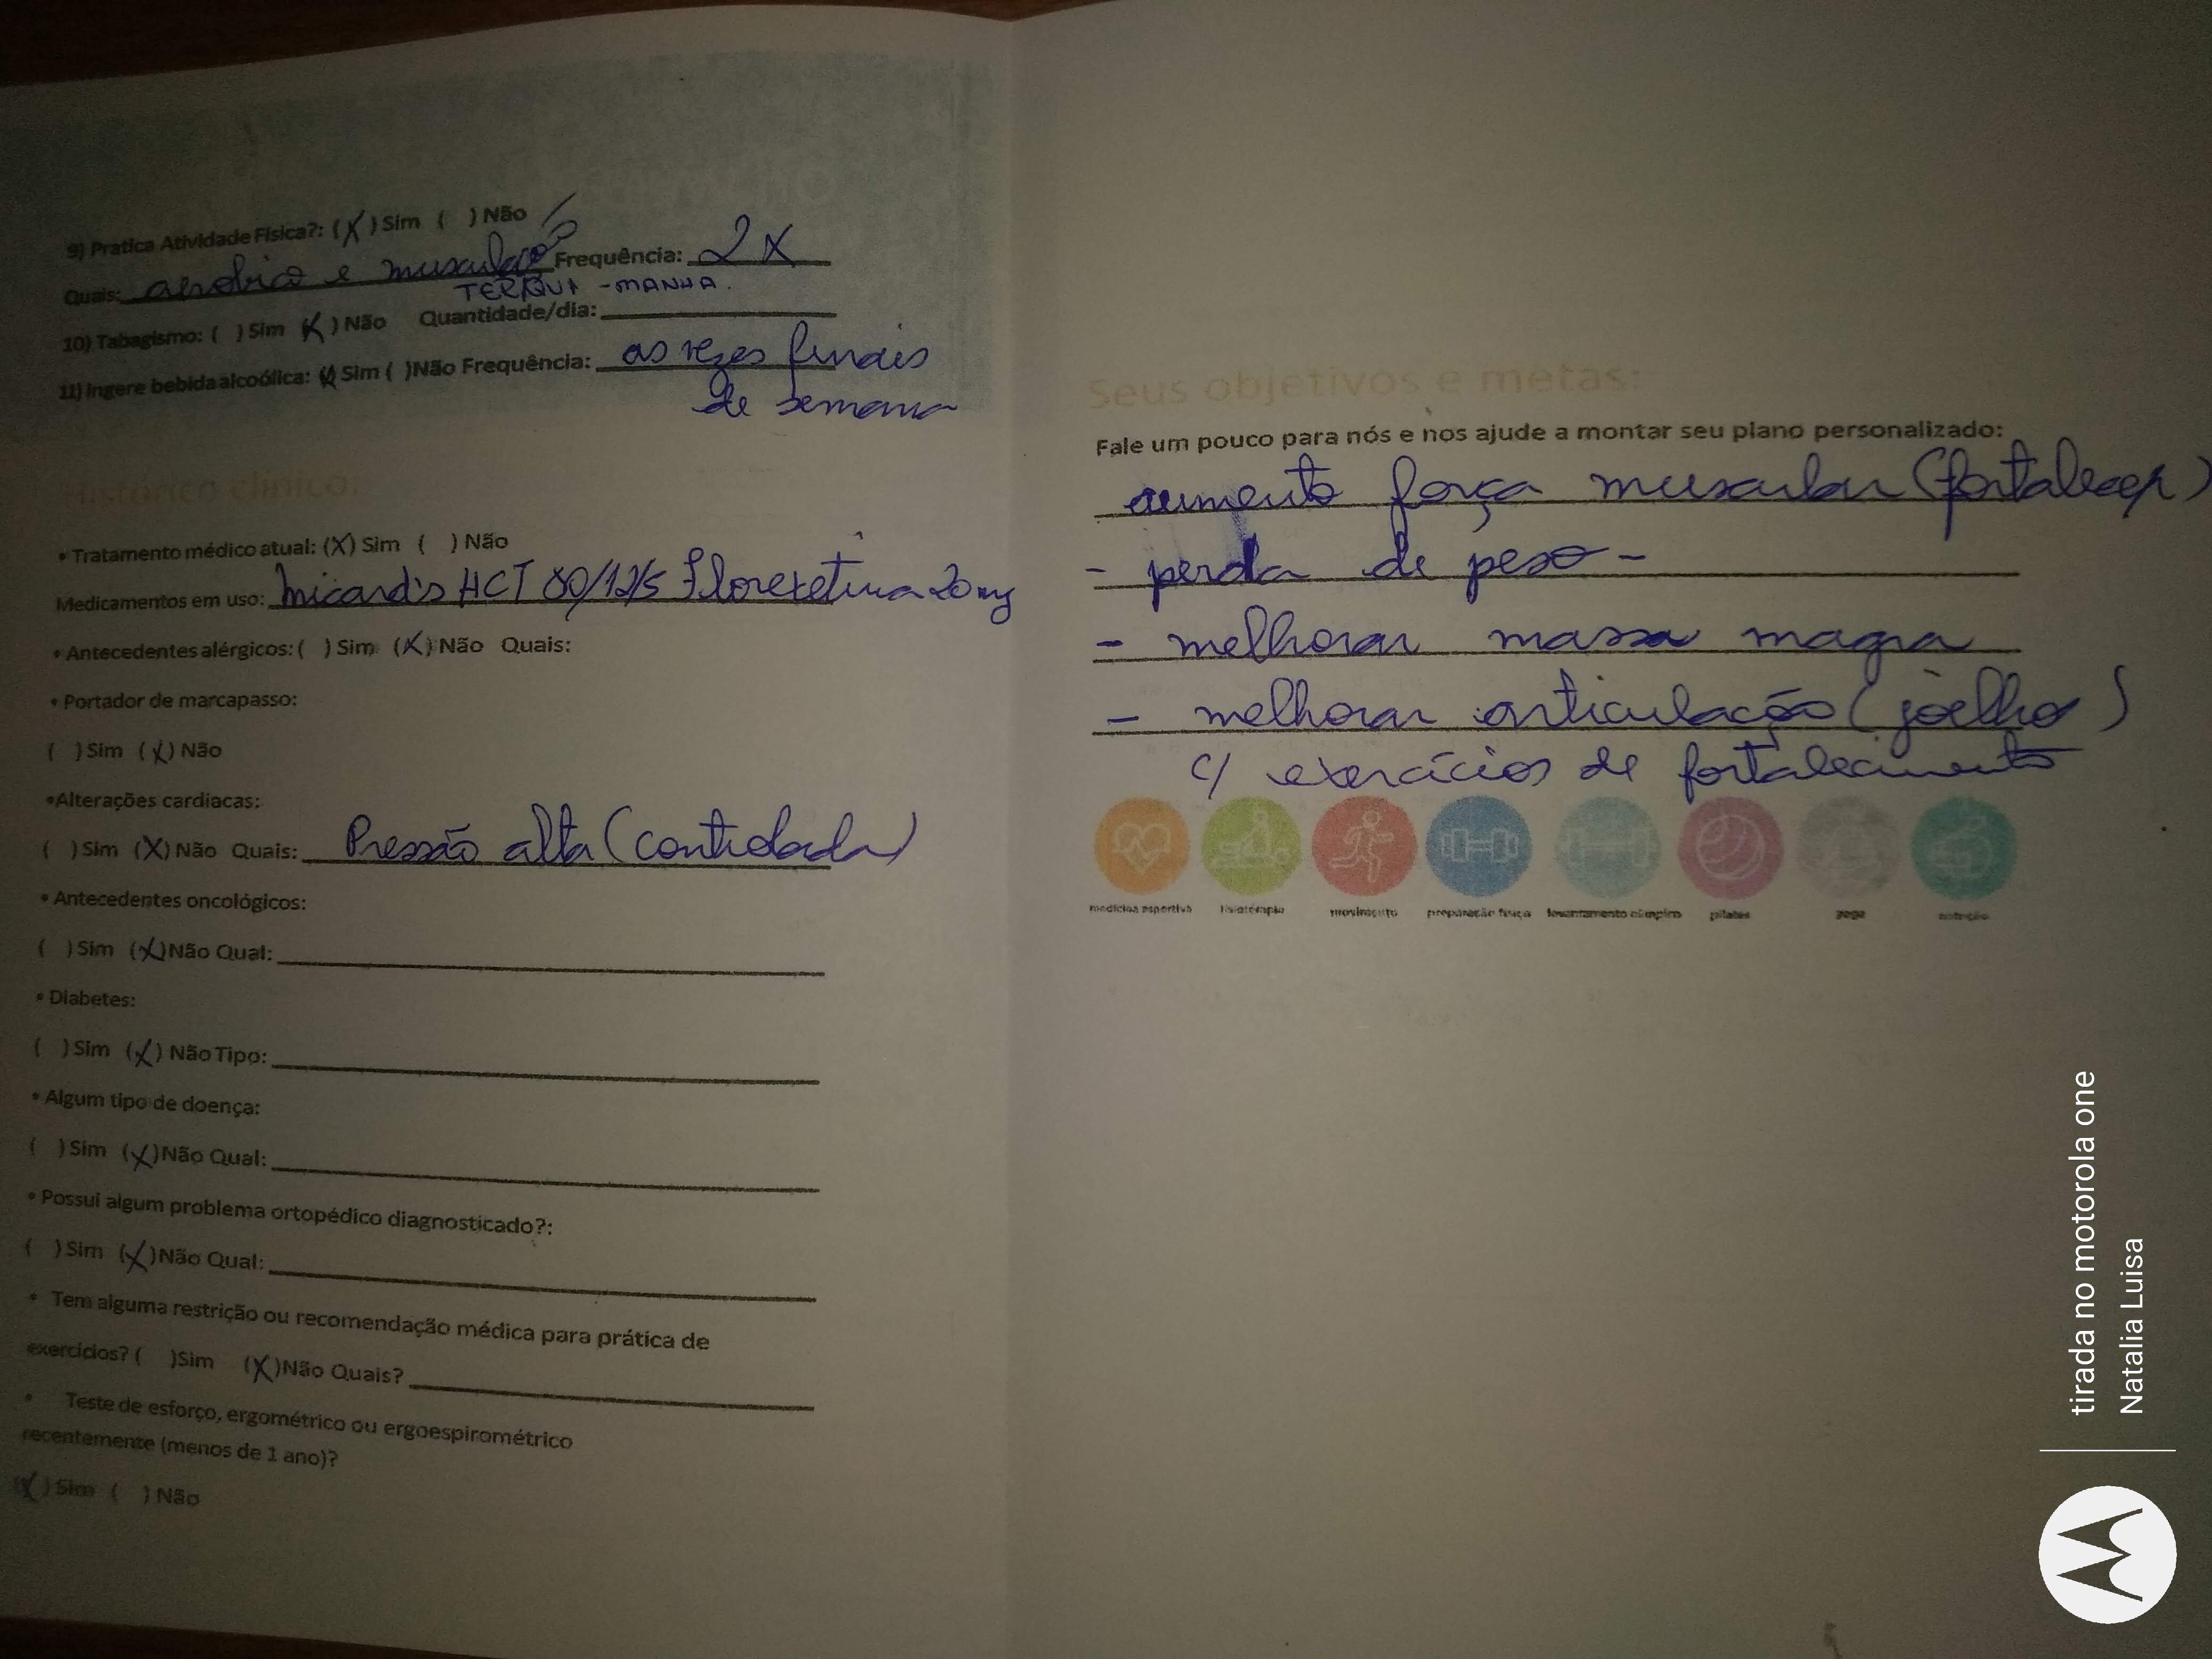 9) Pratica Atividade Física?: (X) Sim ( ) Não
Quais: aeróbico e musculação Frequência: 2 X
TER - MANHA.
10) Tabagismo: ( ) Sim (X) Não Quantidade/dia:
11) Ingere bebida alcoólica: (X) Sim ( )Não Frequência: as vezes finais
de semana
Histórico clínico:
• Tratamento médico atual: (X) Sim ( ) Não
Medicamentos em uso: micardis HCT 80/12,5 fluoxetina 20mg
• Antecedentes alérgicos: ( ) Sim (X) Não Quais:
• Portador de marcapasso:
( ) Sim (X) Não
•Alterações cardiacas:
( ) Sim (X) Não Quais: Pressão alta (controlada)
•Antecedentes oncológicos:
( ) Sim (X)Não Qual:
• Diabetes:
( ) Sim (X) Não Tipo:
•Algum tipo de doença:
( ) Sim (X)Não Qual:
•Possui algum problema ortopédico diagnosticado?:
( ) Sim (X)Não Qual:
• Tem alguma restrição ou recomendação médica para prática de
exercicios? ( )Sim (X)Não Quais?
• Teste de esforço, ergométrico ou ergoespirométrico
recentemente (menos de 1 ano)?
(X) Sim ( ) Não
Seus objetivos e metas:
Fale um pouco para nós e nos ajude a montar seu plano personalizado:
aumento força muscular (fortalecer)
- perda de peso -
- melhorar massa magra
- melhorar articulação (joelho)
c/ exercícios de fortalecimento
medicina esportiva fisioterapia movimento preparação física levantamento olímpico pilates yoga nutrição
tirada no motorola one
Natalia Luisa